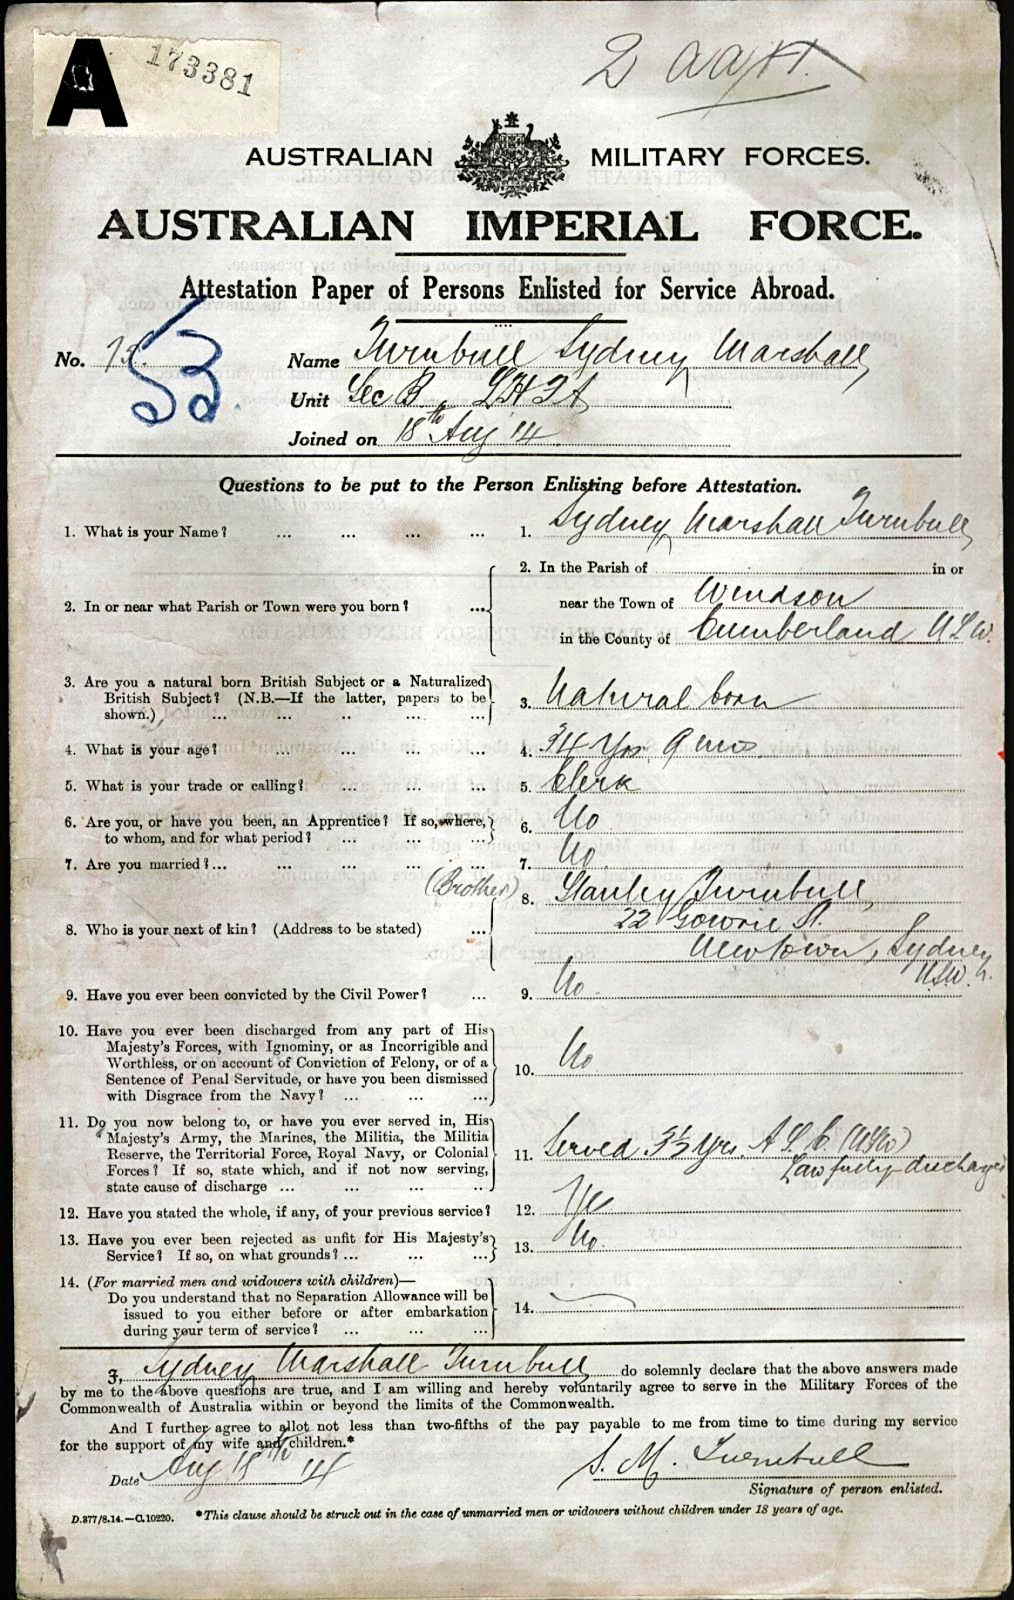 A 173381
2 AAH.
AUSTRALIAN MILITARY FORCES.
AUSTRALIAN IMPERIAL FORCE.
Attestation Paper of Persons Enlisted for Service Abroad.
No. 
53
Name Turnbull Sydney Marshall
Unit Sec B. LHFA
Joined on 18th Aug 14
Questions to be put to the Person Enlisting before Attestation.
1. What is your Name? ... ... ... ... 1. Sydney Marshall Turnbull
2. In or near what Parish or Town were you born? ... 2. In the Parish of in or
near the Town of Windsor
in the County of Cumberland NSW.
3. Are you a natural born British Subject or a Naturalized
British Subject? (N.B.—If the latter, papers to be
shown.) ... ... .. ... ... 3. Natural born
4. What is your age? ... ... ... ... 4. 34 Yrs 9 mos
5. What is your trade or calling? ... ... ... 5. Clerk
6. Are you, or have you been, an Apprentice? If so, where,
to whom, and for what period? ... ... ... 6. No
7. Are you married? ... ... ... ... ... 7. No
(Brother) 8. Stanley Turnbull
22 Gowrie St.
8. Who is your next of kin? (Address to be stated) ...
Newtown, Sydney
NSW.
9. Have you ever been convicted by the Civil Power? ... 9. No.
10. Have you ever been discharged from any part of His
Majesty's Forces, with Ignominy, or as Incorrigible and
Worthless, or on account of Conviction of Felony, or of a
Sentence of Penal Servitude, or have you been dismissed
with Disgrace from the Navy? ... ... ... 10. No
11. Do you now belong to, or have you ever served in, His
Majesty's Army, the Marines, the Militia, the Militia
Reserve, the Territorial Force, Royal Navy, or Colonial
Forces? If so, state which, and if not now serving,
state cause of discharge ... ... ... .. 11. Served 3½ Yrs. A S C (NSW)
Lawfully discharged
12. Have you stated the whole, if any, of your previous service? 12. Yes
13. Have you ever been rejected as unfit for His Majesty's
Service? If so, on what grounds? ... ... ... 13. No.
14. (For married men and widowers with children)—
Do you understand that no Separation Allowance will be
issued to you either before or after embarkation
during your term of service? ... ... ... 14.
I, Sydney Marshall Turnbull do solemnly declare that the above answers made
by me to the above questions are true, and I am willing and hereby voluntarily agree to serve in the Military Forces of the
Commonwealth of Australia within or beyond the limits of the Commonwealth.
And I further agree to allot not less than two-fifths of the pay payable to me from time to time during my service
for the support of my wife and children.*
Date Aug 18th 14
S. M. Turnbull
Signature of person enlisted.
D.377/8.14.—C.10220. *This clause should be struck out in the case of unmarried men or widowers without children under 18 years of age.